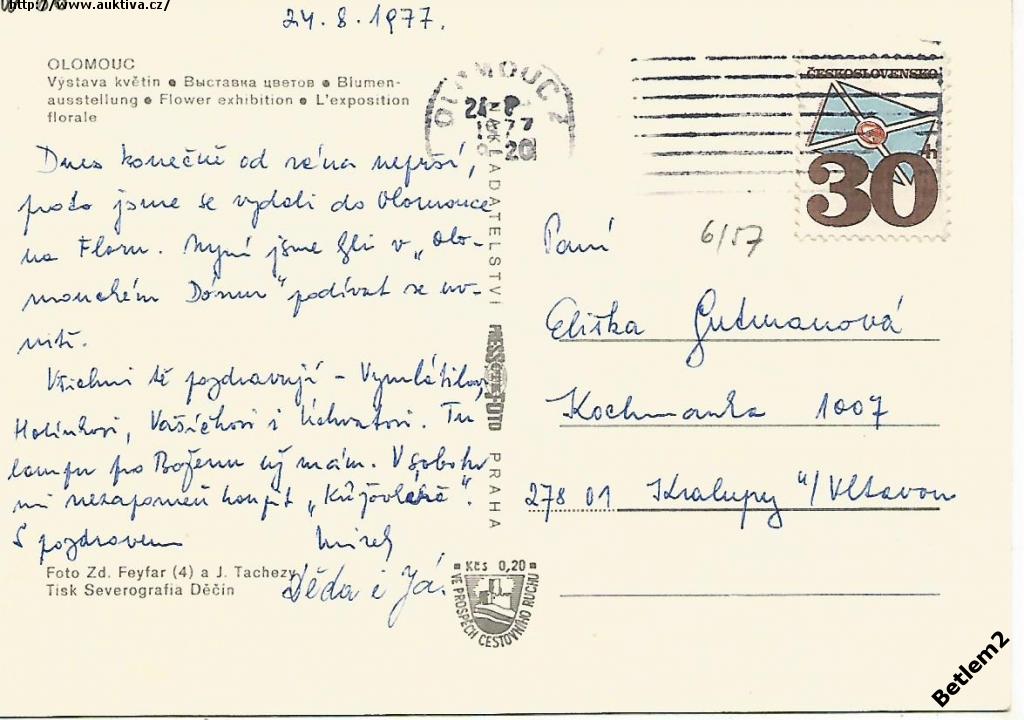 http://www.auktiva.cz/
24.8.1977.
OLOMOUC
Výstava květin • Выставка цветов • Blumen-
ausstellung • Flower exhibition • L'exposition
florale
Dnes konečně od rána neprší,
proto jsme se vydali do Olomouce
na Floru. Nyní jsme šli v „Olo-
mouckém Dómu" podívat se uv-
nitř.
Všichni tě pozdravují - Vymlátilovi,
Holinkovi, Vašíčkovi i Úchvatovi. Tu
lampu pro Boženu už mám. V sobotu
mi nezapomeň koupit „Květy".
S pozdravem Mirek
Děda i Já.
Foto Zd. Feyfar (4) a J. Tachezy
Tisk Severografia Děčín
OLOMOUC 2
24.-8.
1977
20
NAKLADATELSTVÍ PRESSFOTO PRAHA
Kčs 0,20
VE PROSPĚCH CESTOVNÍHO RUCHU
ČESKOSLOVENSKO
30h
6/57
Paní
Eliška Gutmanová
Kochmanka 1007
278 01 Kralupy n/Vltavou
Betlem2